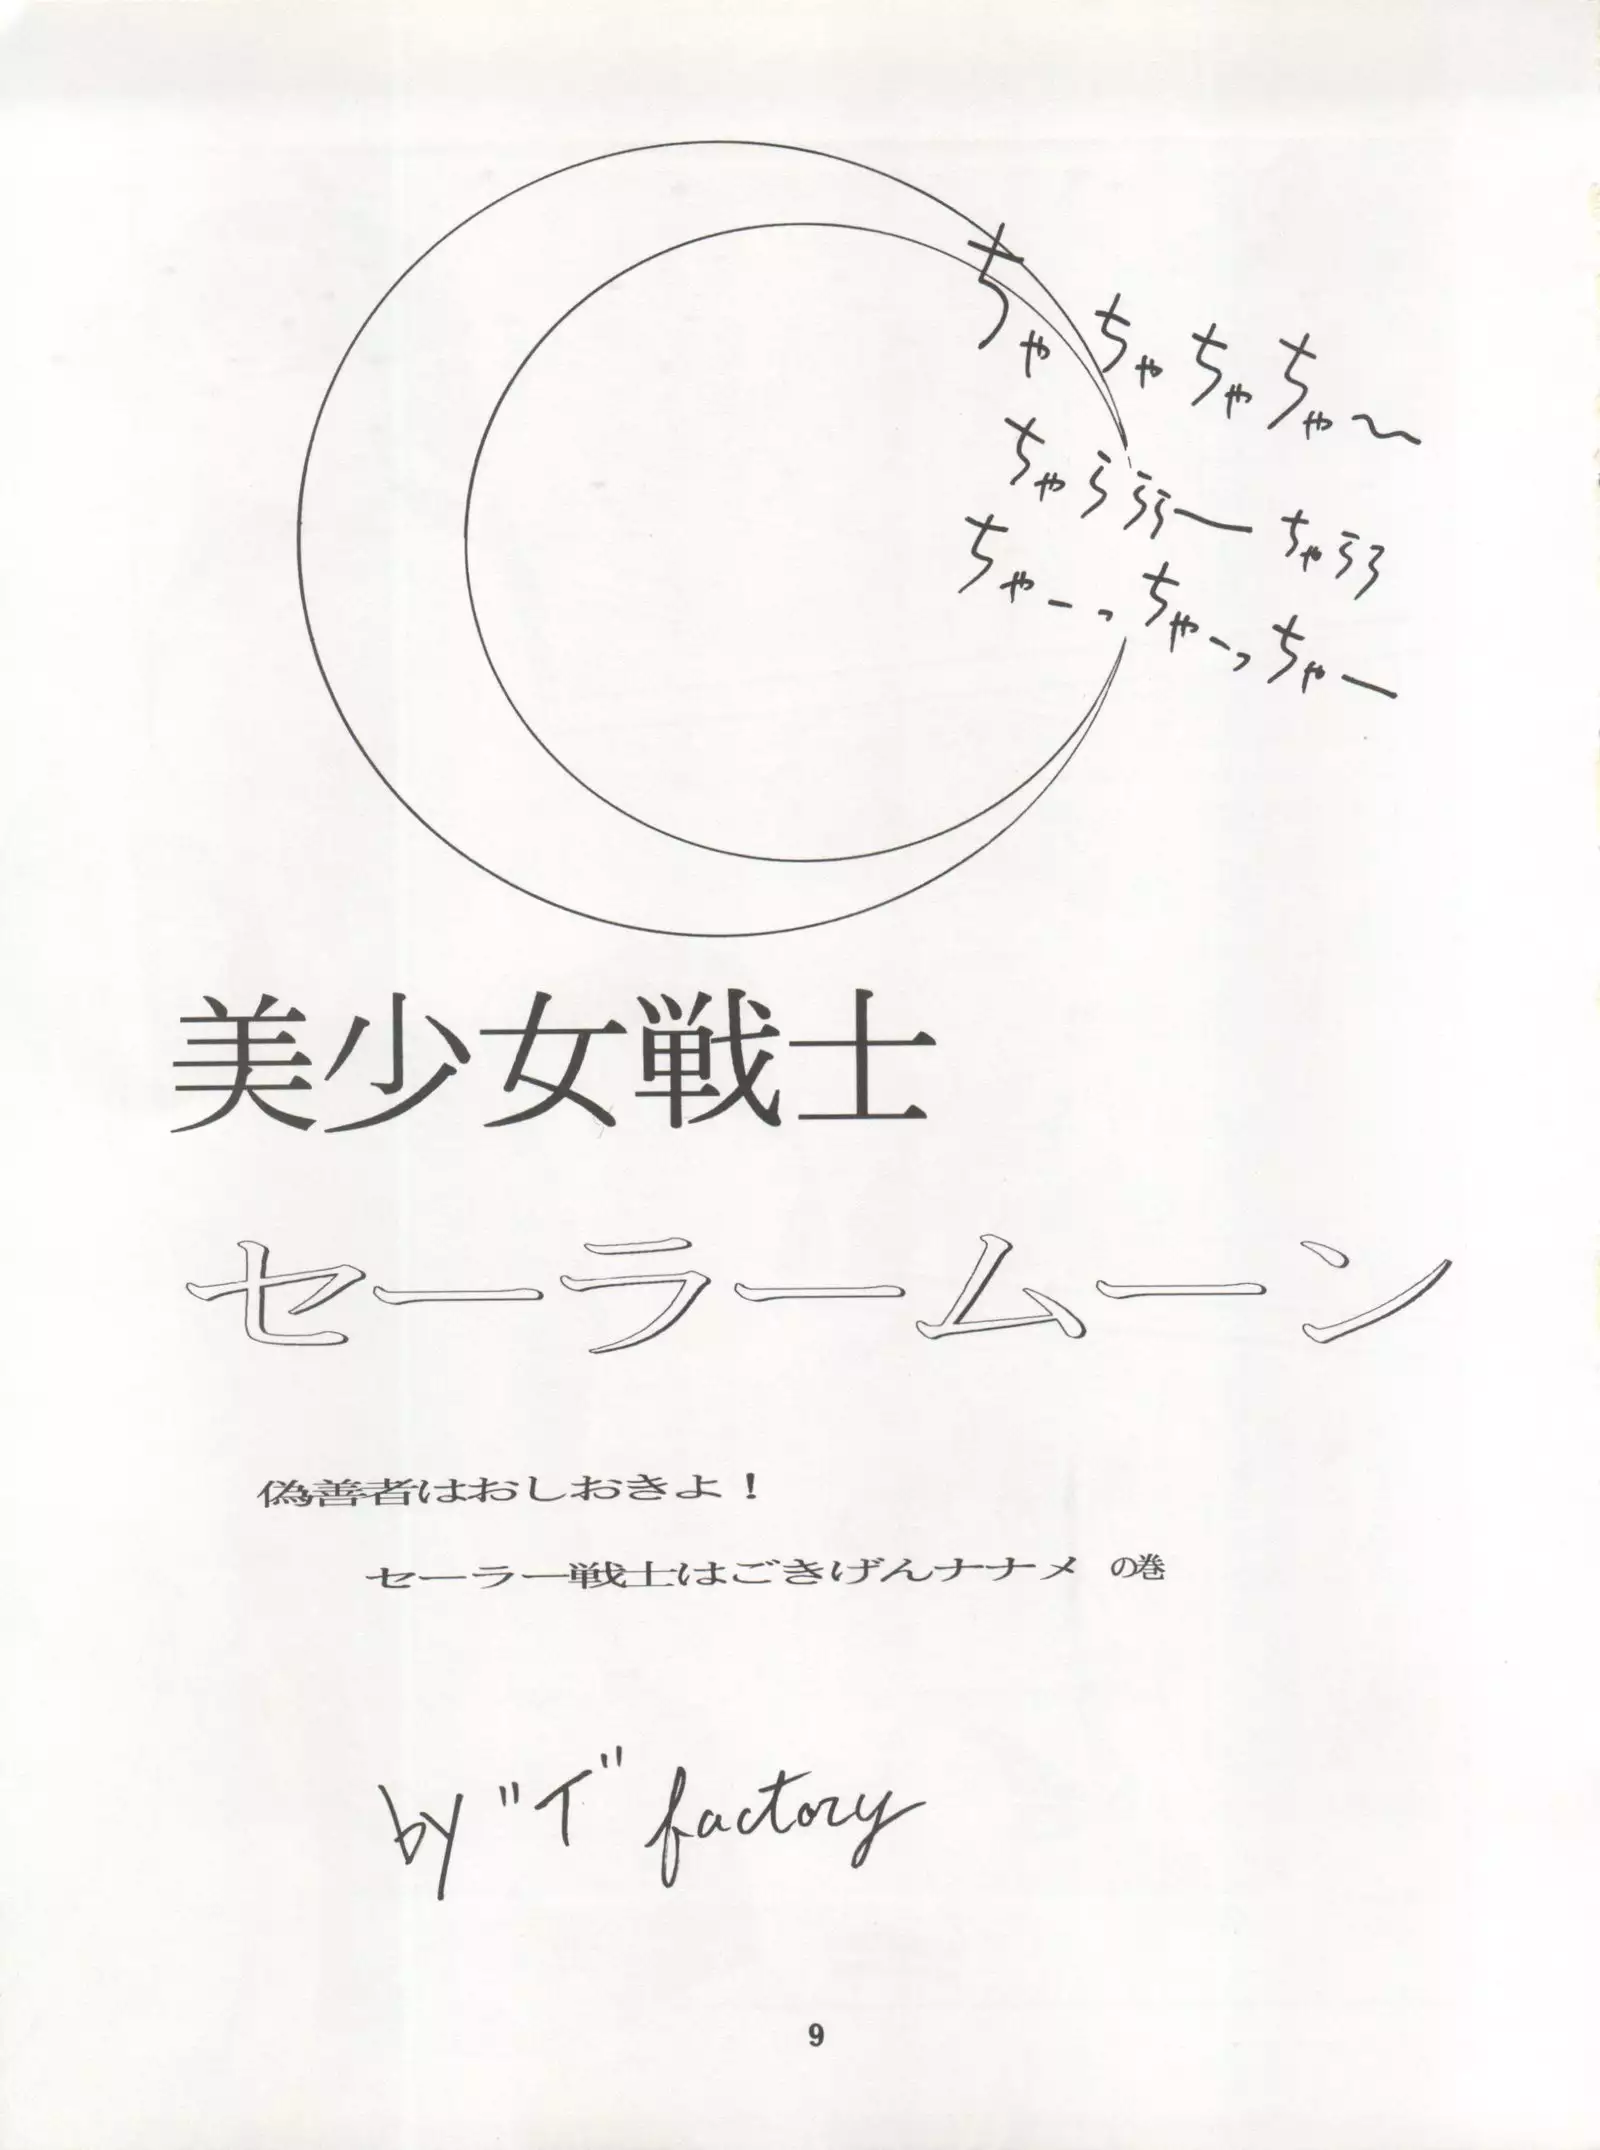 ちゃちゃちゃちゃ〜
ちゃららら〜ちゃらら
ちゃーっちゃーっちゃー
美少女戦士
セーラームーン
偽善者はおしおきよ！
セーラー戦士はごきげんナナメ の巻
by "T" factory
9